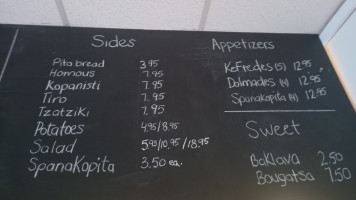 Sides
Pita bread 3.95
Homous 7.95
Kopanisti 7.95
Tiro 7.95
Tzatziki 7.95
Potatoes 4.95/8.95
Salad 5.95/10.95/18.95
Spanakopita 3.50 ea.
Appetizers
Keftedes (5) 12.95
Dolmades (4) 12.95
Spanakopita (4) 12.95
Sweet
Baklava 2.50
Bougatsa 7.50